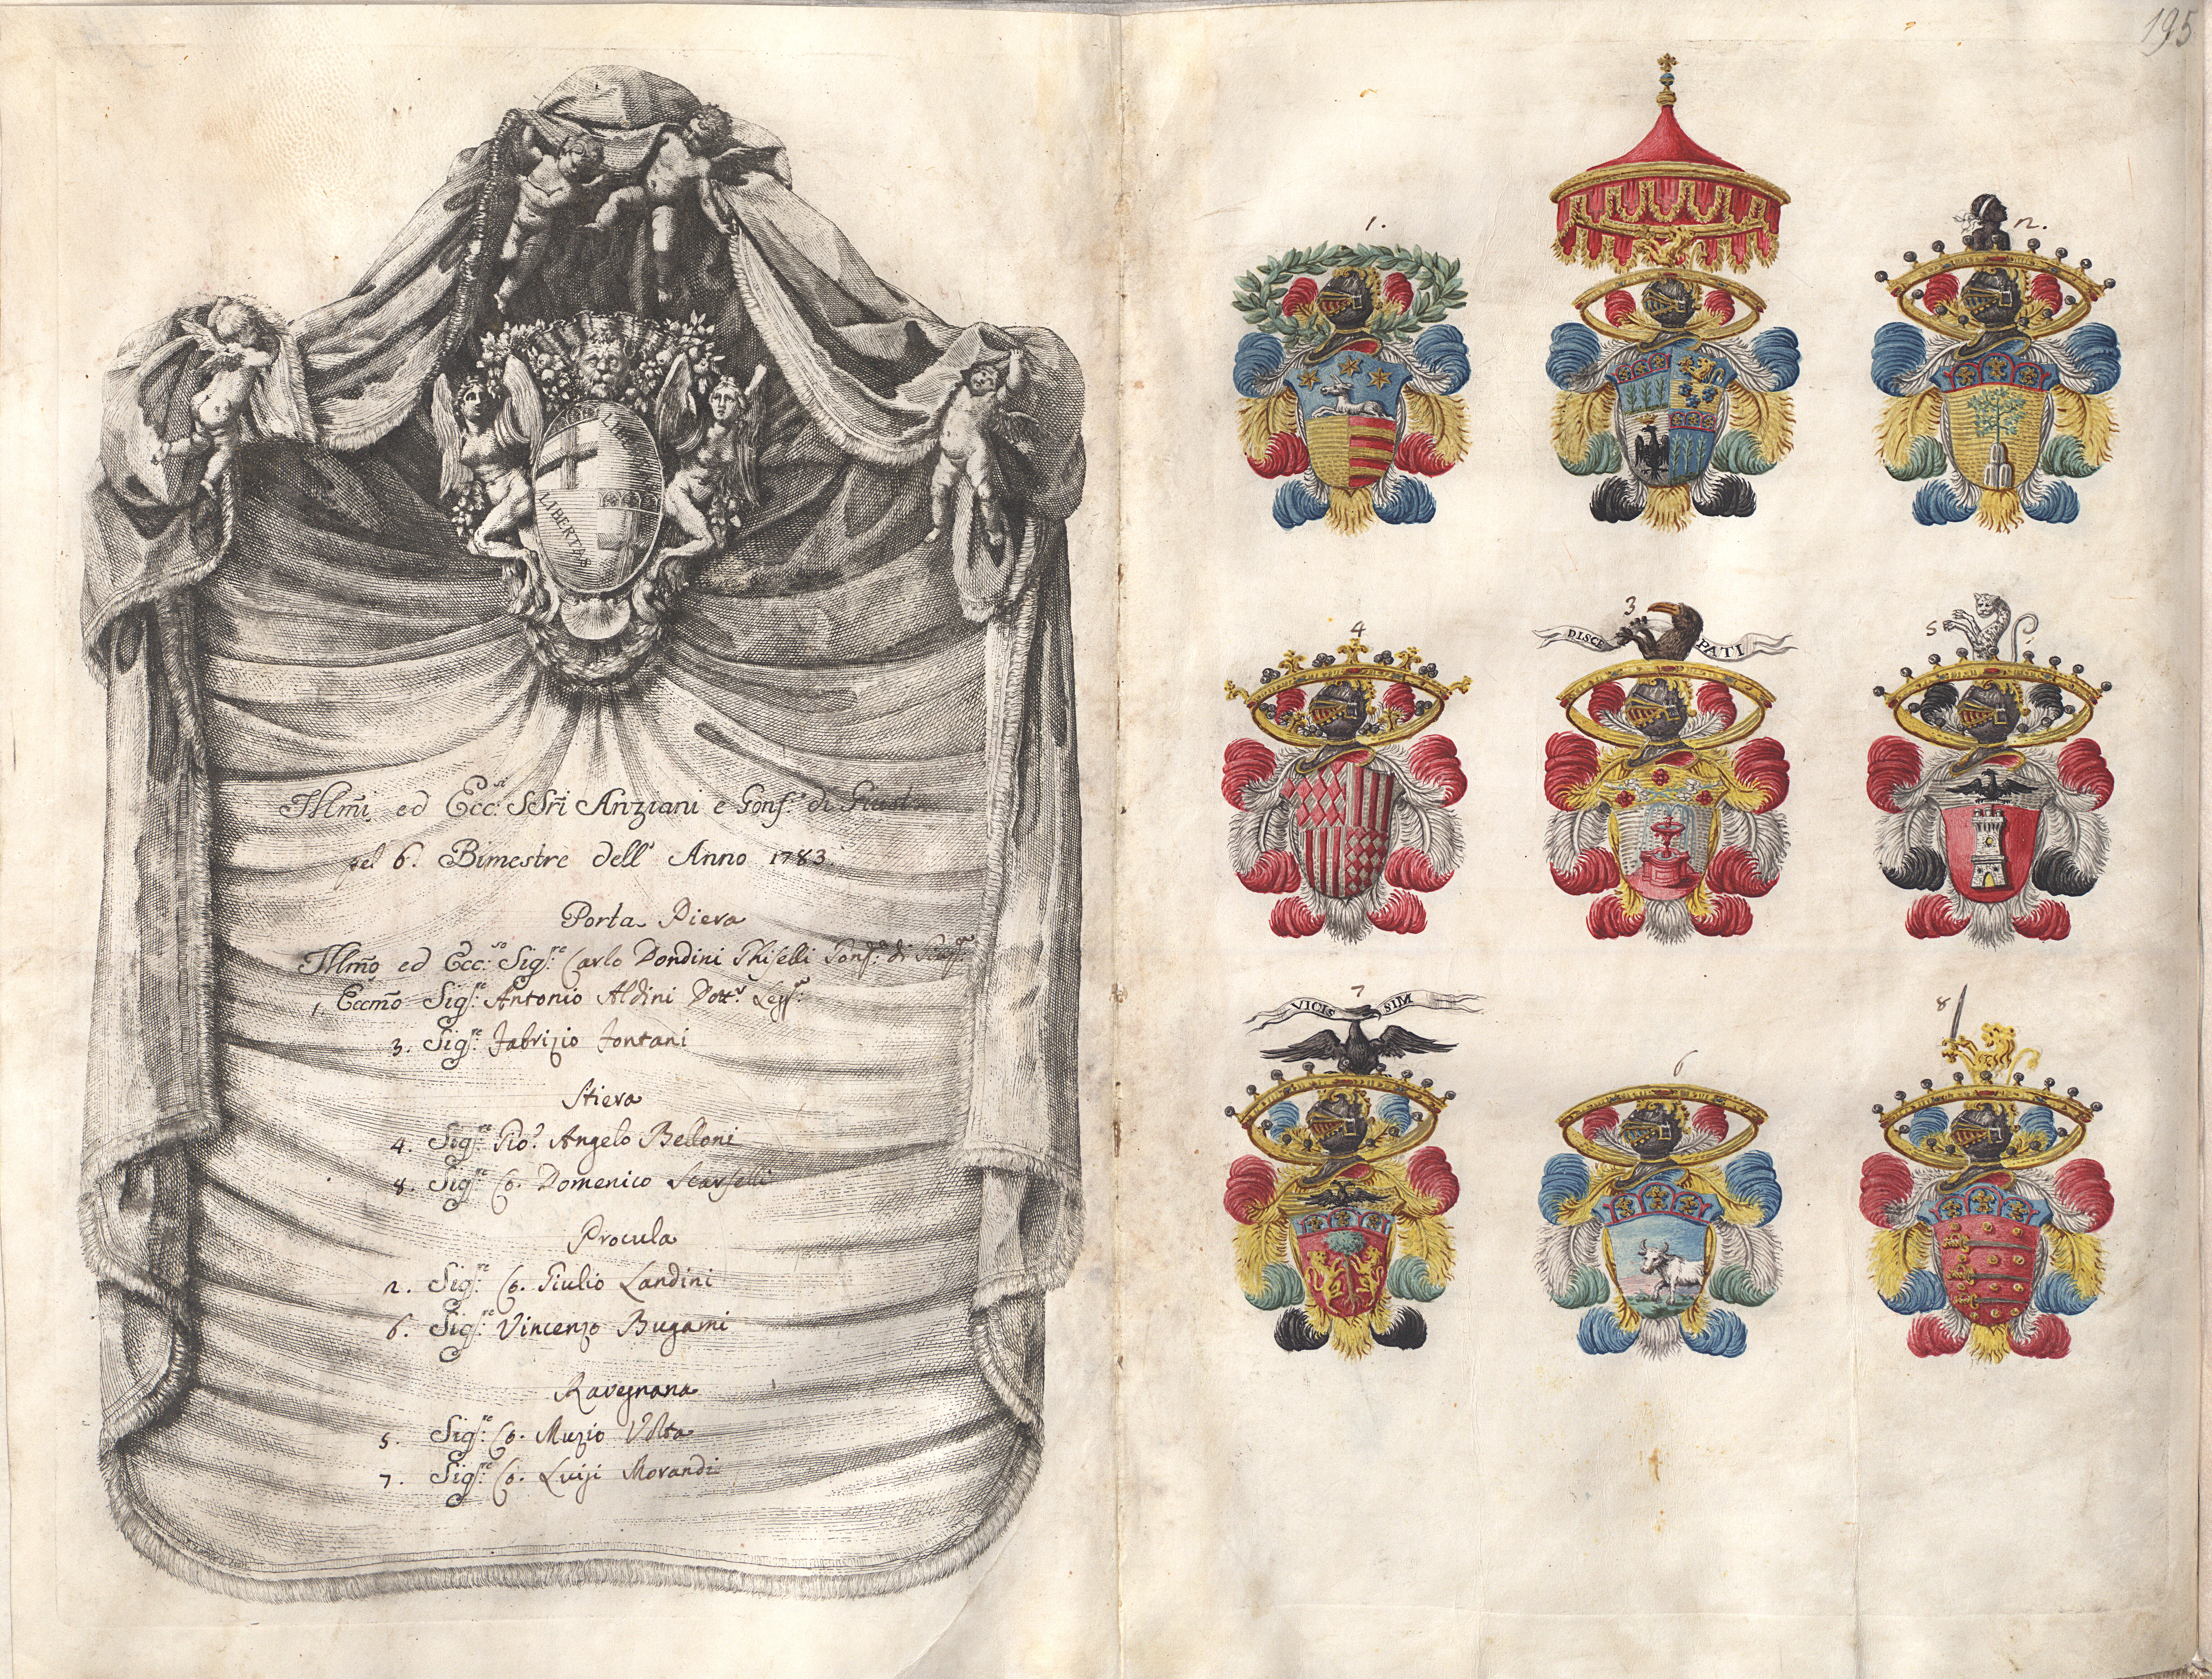 LIBERTAS
Illmi ed Ecc.si SSri Anziani e Gonf.e di Giust.a
pel 6. Bimestre dell' Anno 1783.
Porta Piera
Illmo ed Ecc.so Sig.re Carlo Dondini Ghiselli Gonf.e di Giust.a
1. Eccmo Sig.re Antonio Aldini Dott.r Legg.e
3. Sig.re Fabrizio Fontani
Stiera
4. Sig.re Gio. Angelo Belloni
8. Sig.re Co. Domenico Scarselli
Procula
2. Sig.re Co. Giulio Landini
6. Sig.re Vincenzo Bugami
Ravegnana
5. Sig.re Co. Muzio Volta
7. Sig.re Co. Luigi Morandi
195
1.
2.
4
3
5
DISCE PATI
7
VICIS SIM
6
8